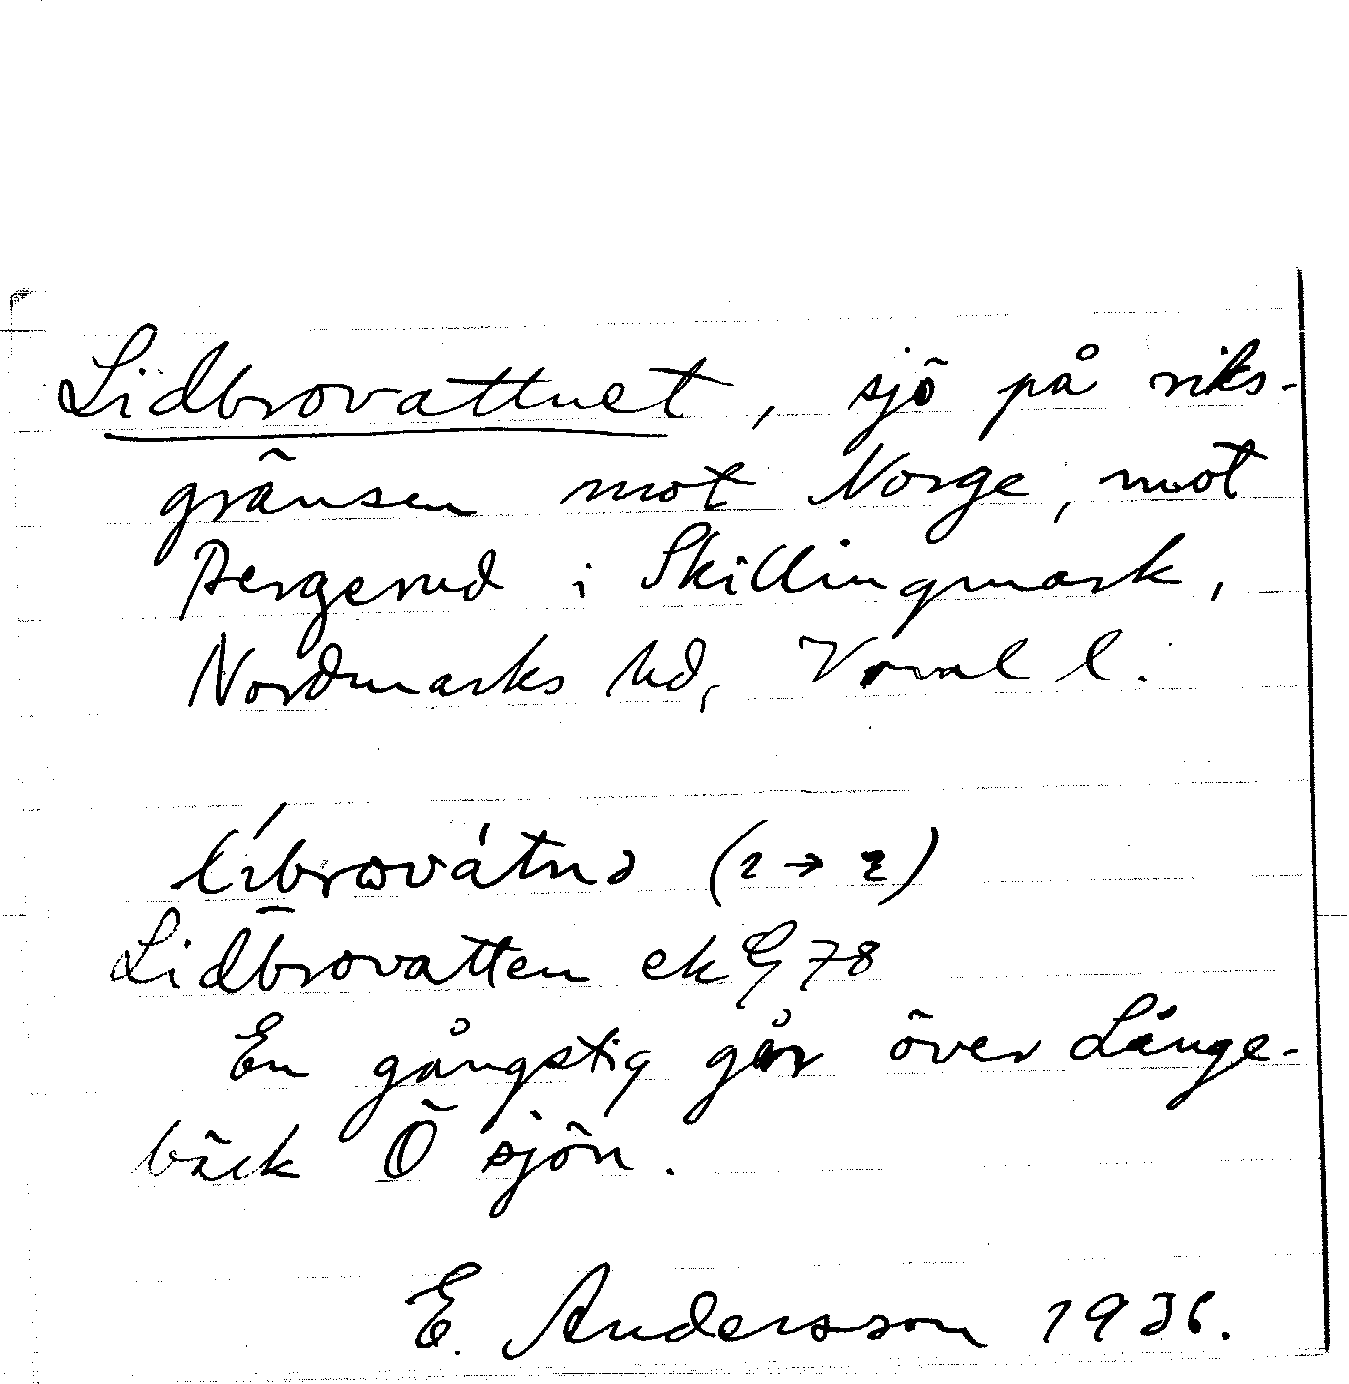 Lidbrovattnet, sjö på riks-
gränsen mot Norge, mot
Bergerud i Skillingmark,
Nordmarks hd, Vrml l.
(ɩ → ɩ)
Lidbrovatten ek G 78
En gångstig går över Långe-
bäck Ö sjön.
E. Andersson 1936.